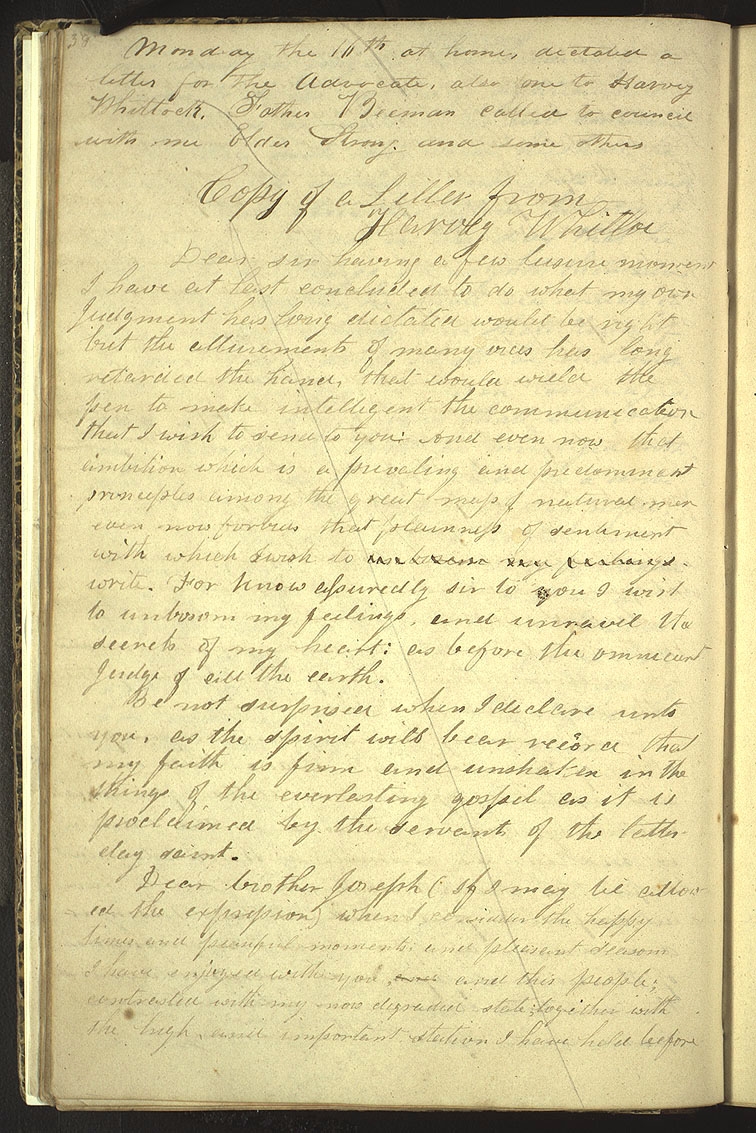 38
Monday the 16th at home, dictated a
letter for the Advocate, also one to Harvey
Whitlock. Father Beeman called to council
with me Elder Strong and some others
Copy of a Letter from
Harvey Whitloc
Dear sir having a few leisure moments
I have at last concluded to do what my own
Judgment has long dictated would be right
but the allurements of many vices has long
retarded the hand, that would wield the
pen to make intelligent the communication
that I wish to send to you: And even now that
ambition which is a prevaling and predominent
principles among the great mass of natural men
even now forbids that plainness of sentiment
with which I wish to unbosom my feelings
write. For know assuredly sir to you I wish
to unbosom my feelings, and unravil the
secrets of my heart: as before the omnicient
Judge of all the earth.
Be not surprised when I declare unto
you, as the spirit will bear record that
my faith is firm and unshaken in the
things of the everlasting gospel as it is
proclaimed by the servants of the latter-
day saint.
Dear brother Joseph (If I may be allow-
ed the expression) when I considder the happy
times and peaseful moments, and pleasant seasons
I have enjoyed with you, and this people;
contrasted with my now degraded state; together with
the high, and important station I have held before